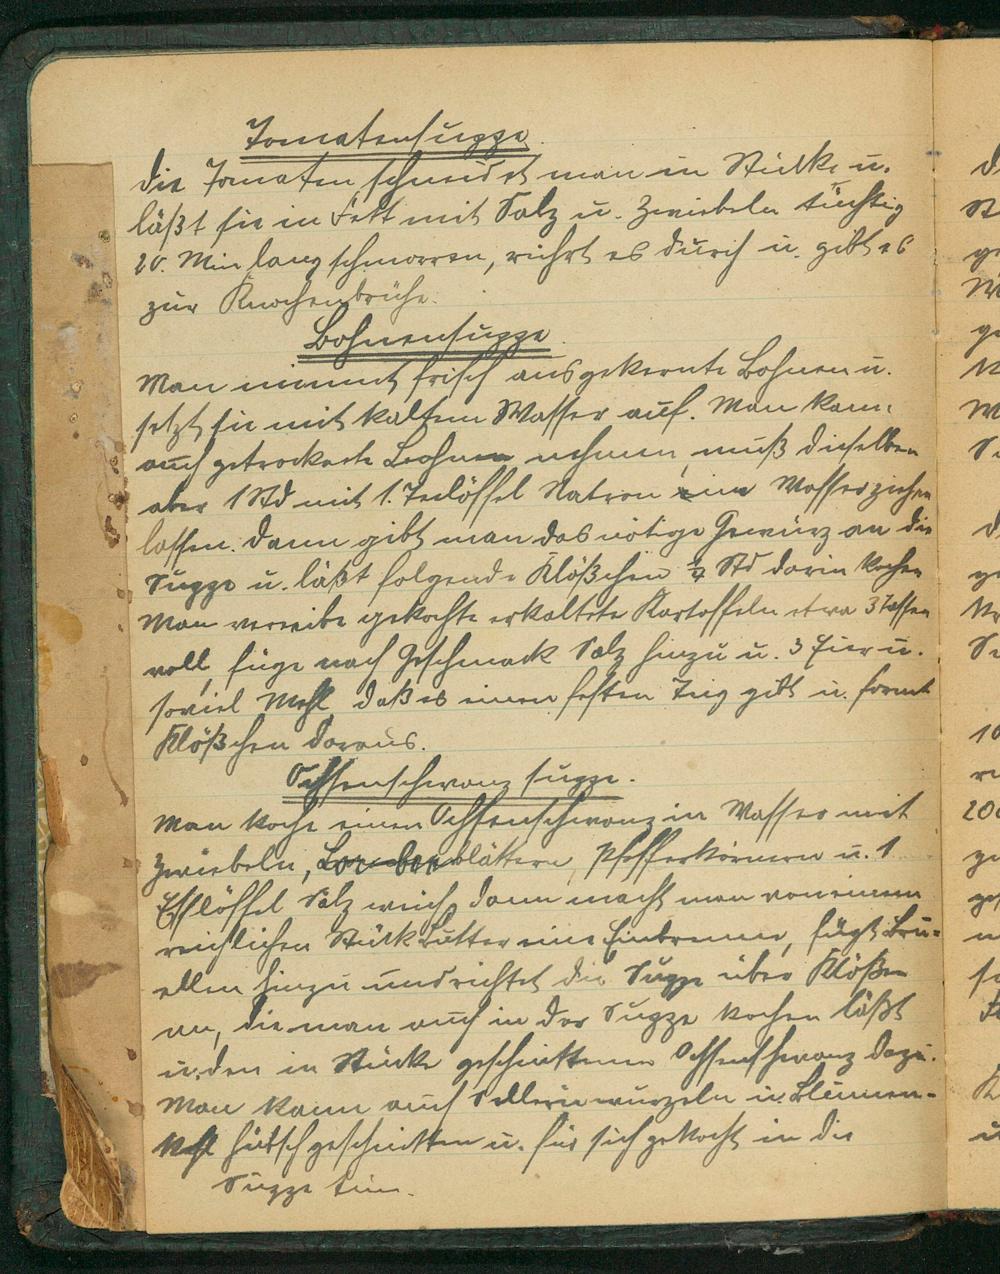 Tomatensuppe.
Die Tomaten schneidet man in Stücke u.
läßt sie in Fett mit Salz u. Zwiebeln tüchtig
20. Min lang schmorren, rührt es durch u. gibt es
zur Knochenbrühe.
Bohnensuppe.
Man nimmt frisch ausgekernte Bohnen u.
setzt sie mit kaltem Wasser auf. Man kann
auch getrocknete Bohnen nehmen, muß dieselben
aber 1 Std mit 1. Teelöffel Natron im Wasser ziehen
lassen. Dann gibt man das nötige Gewürz an die
Suppe u. läßt folgende Klößchen ¼ Std darin kochen
Man verreibe gekochte erkaltete Kartoffeln etwa 3 Tassen
voll, füge nach Geschmack Salz hinzu u. 3 Eier u.
soviel Mehl, daß es einen festen Teig gibt u. formt
Klößchen daraus.
Ochsenschwanzsuppe.
Man koche einen Ochsenschwanz in Wasser mit
Zwiebeln, Lorberblättern, Pfefferkörnern u. 1
Eßlöffel Salz weich, dann macht man von einem
reichlichen Stück Butter eine Einbrenne, fügt
hinzu und richtet die Suppe über Klößen
an, die man auch in der Suppe kochen läßt
u. den in Stücke geschnittenen Ochsenschwanz dazu.
Man kann auch Selleriewurzeln u. Blumen-
kohl hübsch geschnitten u. für sich gekocht in die
Suppe tun.